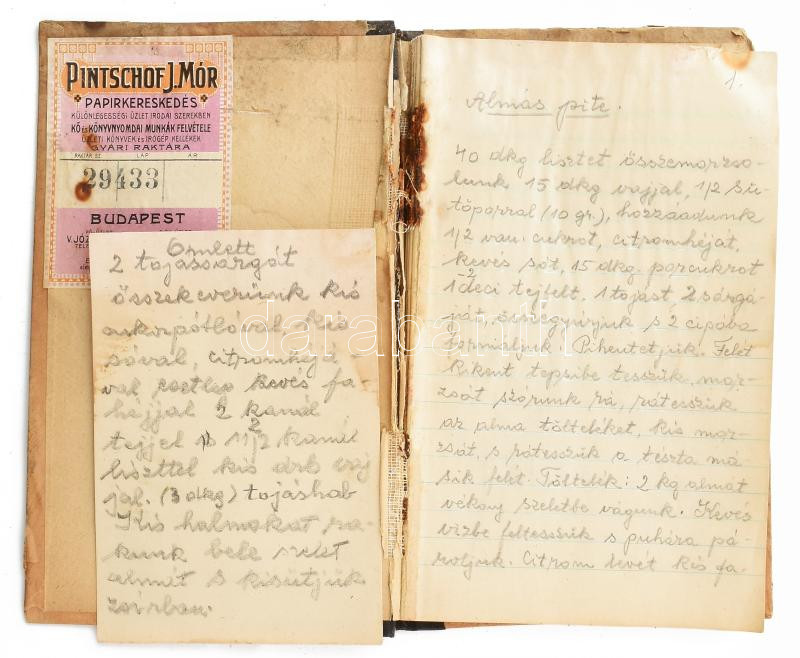 PINTSCHOF J. MÓR
PAPIRKERESKEDÉS
KÜLÖNLEGESSÉGI ÜZLET IRODAI SZEREKBEN
KŐ ÉS KÖNYVNYOMDAI MUNKÁK FELVÉTELE
ÜZLETI KÖNYVEK ÉS IRÓGÉP KELLÉKEK
GYÁRI RAKTÁRA
RAKTÁR SZ. LAP ÁR
29433
BUDAPEST
V. JÓZ
Omlett
2 tojássárgát
összekeverünk kis
cukorpótlóval, kis
sóval, citromhéjá-
val esetleg kevés fa-
héjjal 2 kanál
tejjel s 1 1/2 kanál
liszttel kis drb vaj
jal. (3 dkg) tojáshab
Kis halmokat ra-
kunk bele szelet
almát s kisütjük
zsírban.
1.
Almás pite.
40 dkg lisztet összemorzso-
lunk 15 dkg vajjal, 1/2 sü-
tőporral (10 gr.), hozzáadunk
1/2 van. cukrot, citromhéját,
kevés sót, 15 dkg. porcukrot
1 2 deci tejfelt, 1 tojást, 2 sárgá-
ját, s 2 cipóba
formáljuk Pihentetjük. Felét
tepsibe tesszük, mor-
zsát szórunk rá, rátesszük
az alma tölteléket, kis mor-
zsát, s rátesszük a tészta má
sik felét. Töltelék: 2 kg almát
vékony szeletbe vágunk. Kevés
vízbe feltesszük s puhára pá-
roljuk. Citrom levét kis fa-
darabanth